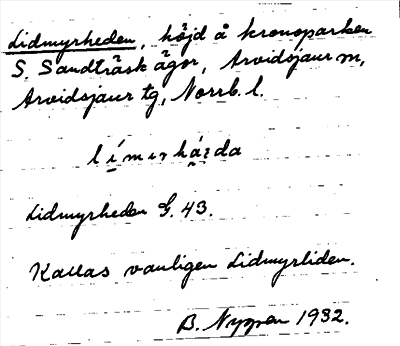 Lidmyrheden, höjd å kronoparken
S. Sandträsk ägor, Arvidsjaur m,
Arvidsjaur tg, Norrb. l.
Lidmyrheden G. 43.
Kallas vanligen Lidmyrliden.
B. Nyman 1932.